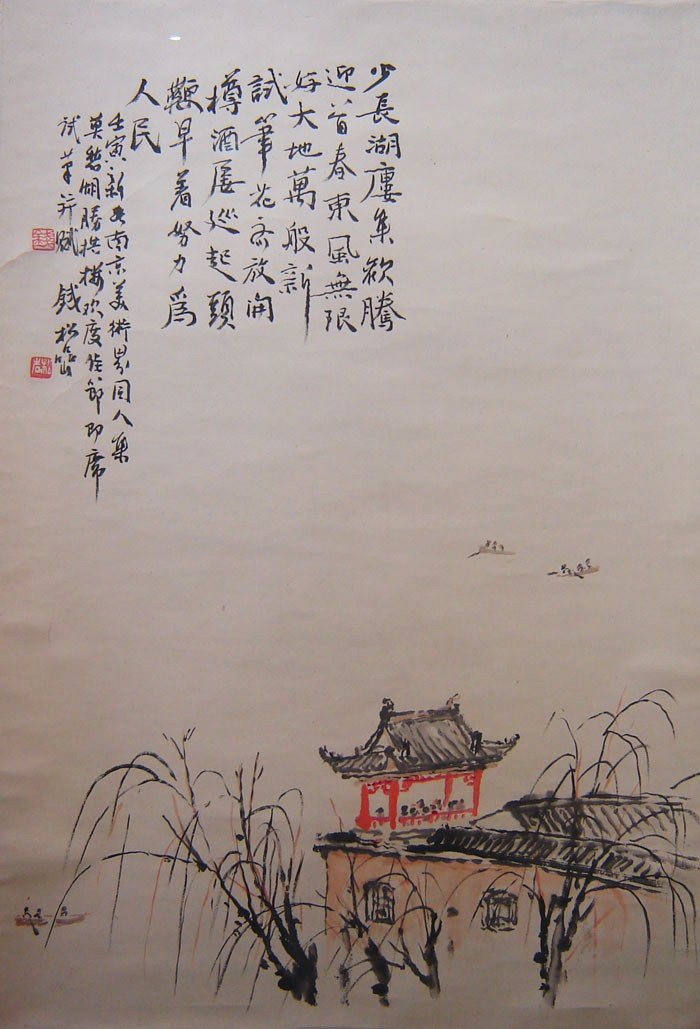 少長湖廔集欲騰
迎首春東風無限
好大地萬般新
試筆花齊放開
樽酒屡巡起頭
歡早着努力為
人民
壬寅新春南京美術界同人集
莫愁湖勝棋樓欢度佳節即席
试筆并赋 錢松喦